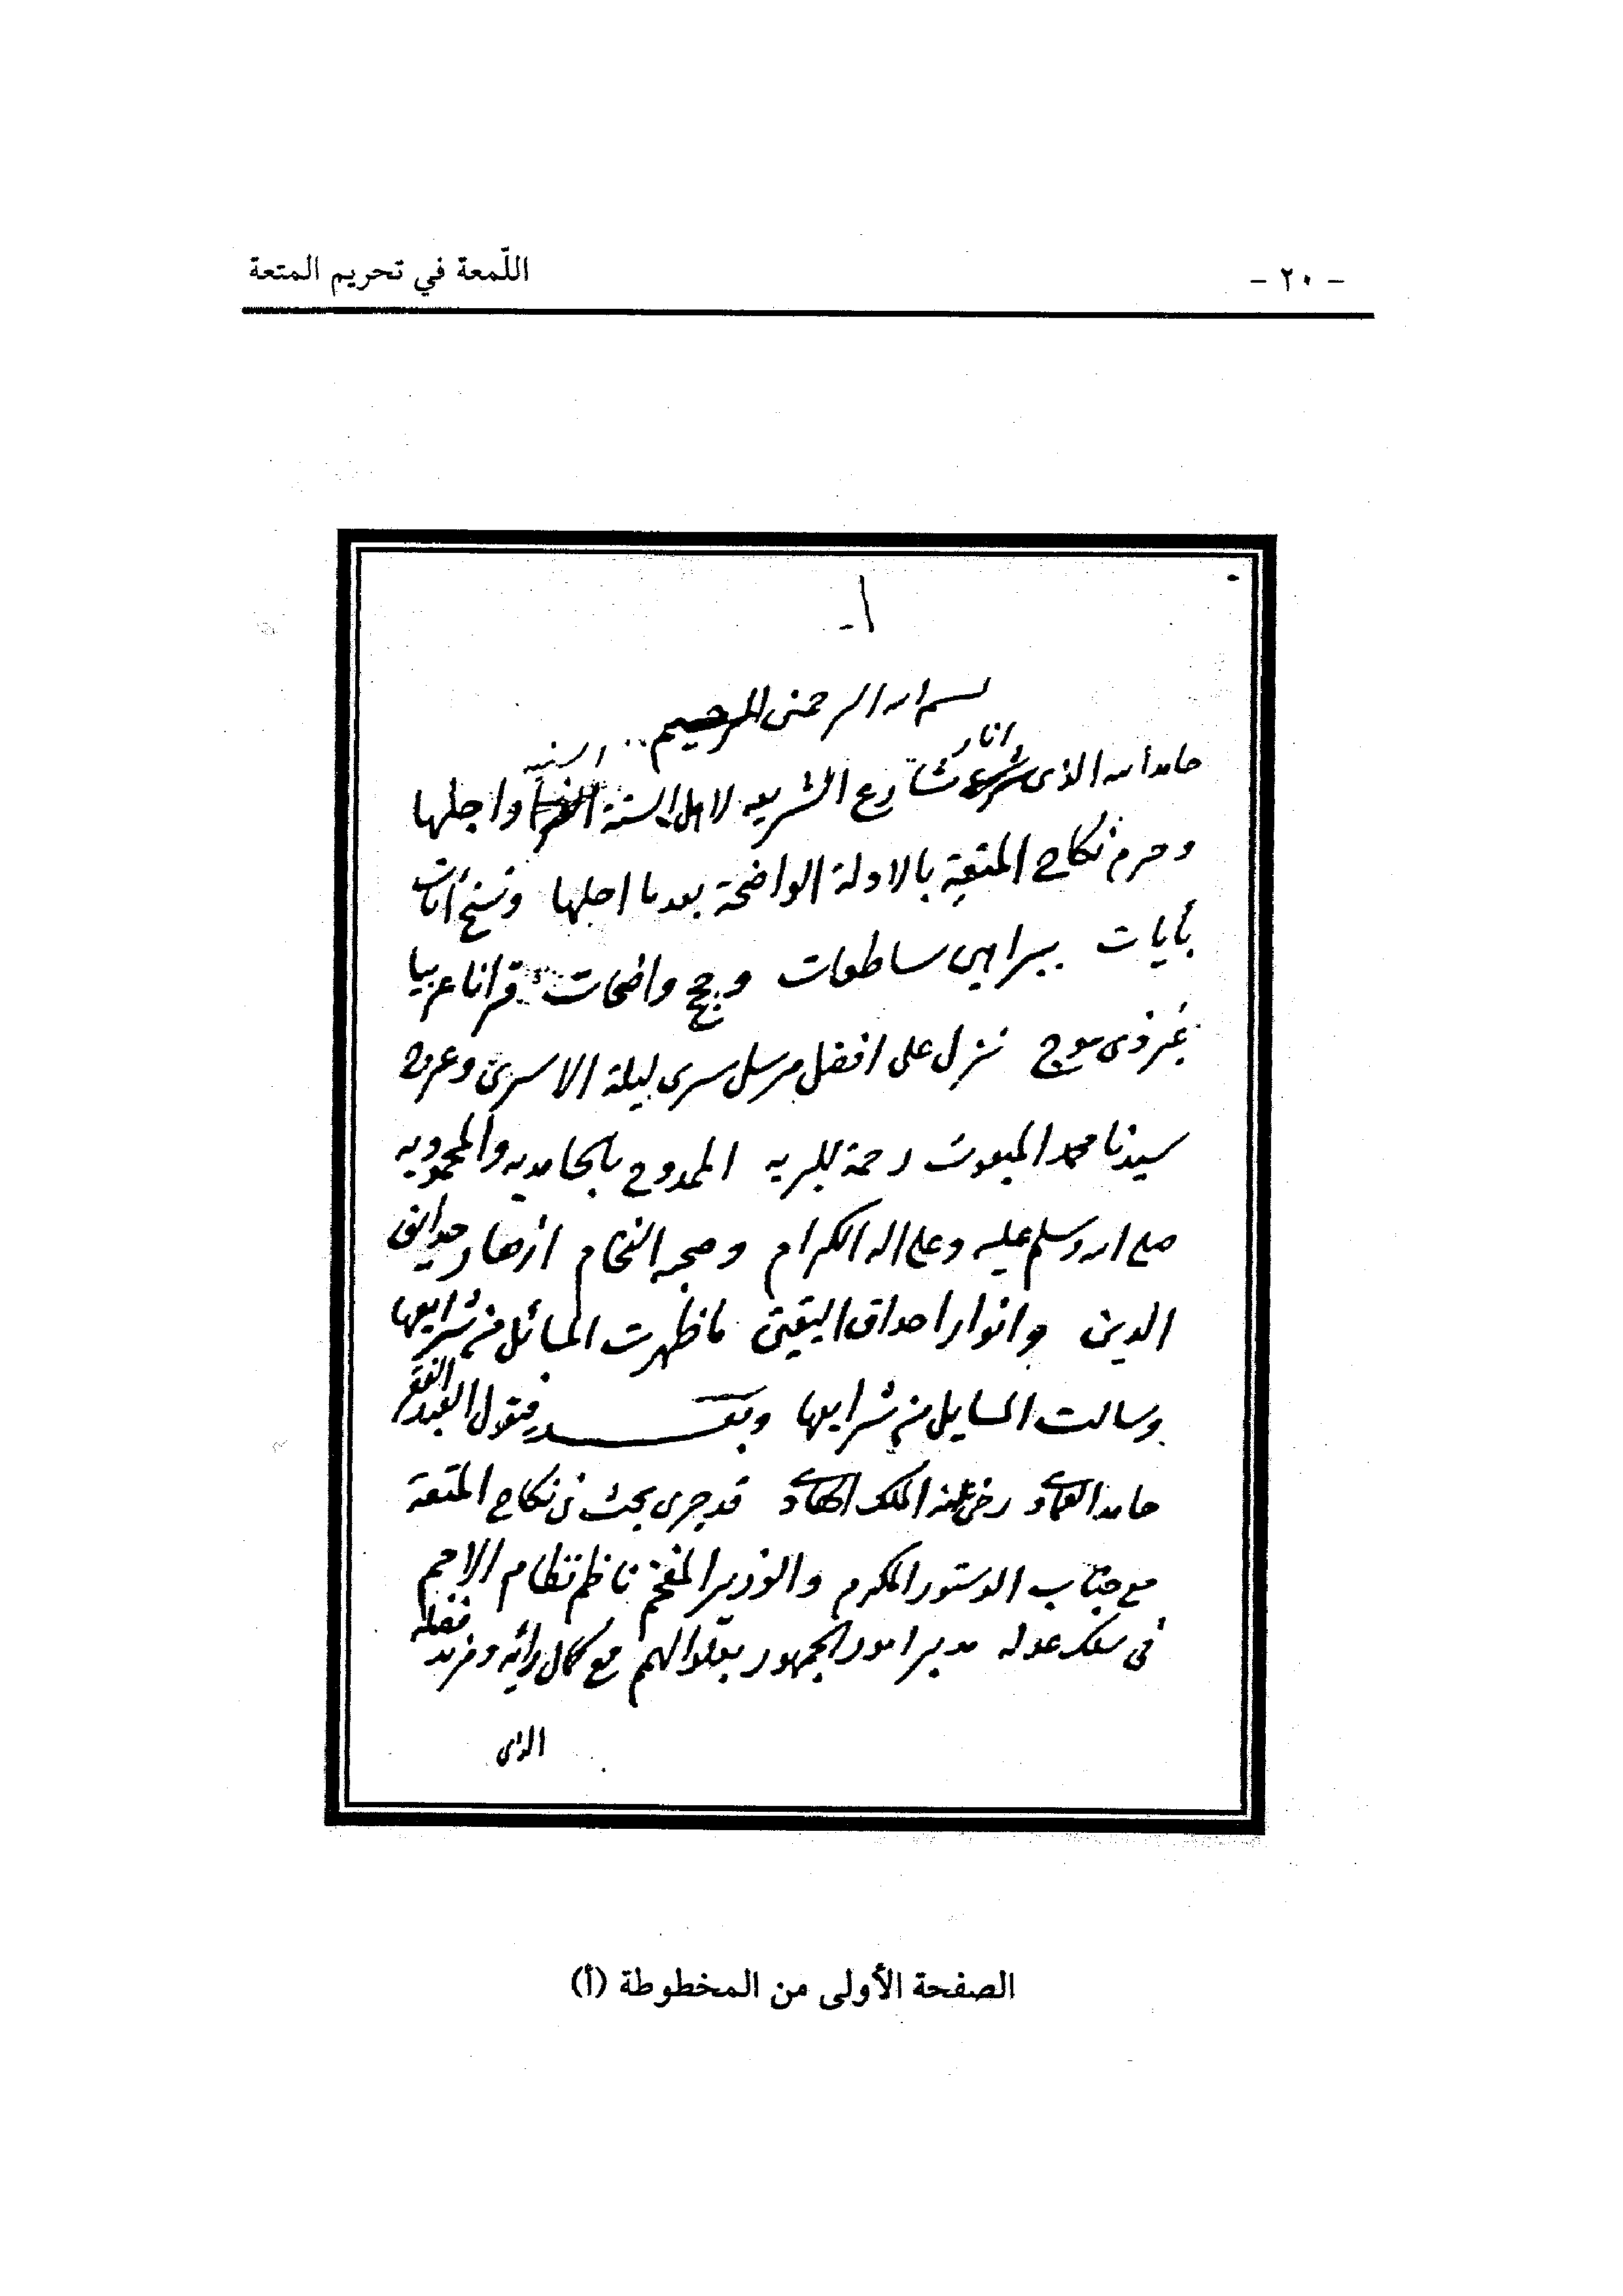 - ٢٠ -
اللّمعة في تحريم المتعة
أ-
بسم الله الرحمن الرحيم
انار
السنيه
حامدا لله الذى شرع شارع الشريعه لاهل السنة الغرا واجلها
وحرم نكاح المتعة بالادلة الواضحة بعدما احلها ونسخ آيات
بأيات ببراهين ساطعات وحجج واضحات قرانا عربيا
غير ذى عوج نزل على افضل مرسل سرى ليلة الاسرى وعرج
سيدنا محمد المبعوث رحمة للبريه الممدوح بالحامديه والمحموديه
صلى الله وسلم عليه وعلى اله الكرام وصحبه الفخام ازهار حدائق
الدين وانوار احداق اليقين ما ظهرت المسائل من شرايعها
وسالت المسايل من شرايعها وبعد فيقول العبد الفقير
حامد العمادى رضى عنه الملك الهادى قد جرى بحث فى نكاح المتعة
مع جناب الدستور المكرم والوزير المفخم ناظم نظام الامم
فى سلك عدله مدبر امور الجمهور بعلو الهمم مع كمال رأيه ومزيد فضله
الذى
الصفحة الأولى من المخطوطة (أ)